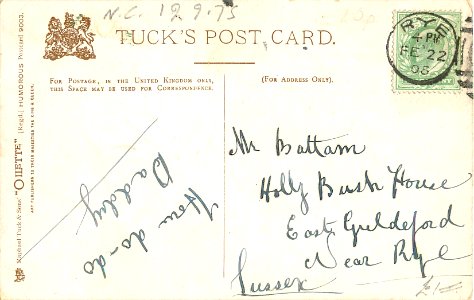 N.C. 12 9.75
TUCK'S POST CARD.
FOR POSTAGE, IN THE UNITED KINGDOM ONLY,
THIS SPACE MAY BE USED FOR CORRESPONDENCE.
(FOR ADDRESS ONLY).
RYE
4-PM
FE 22
Mr Battam
Holly Bush House
East Guldeford
Near Rye
Sussex
How do-do
Daddy
Raphael Tuck & Sons' "OILETTE" [Regd.] HUMOROUS Postcard 9003.
ART PUBLISHERS TO THEIR MAJESTIES THE KING & QUEEN.